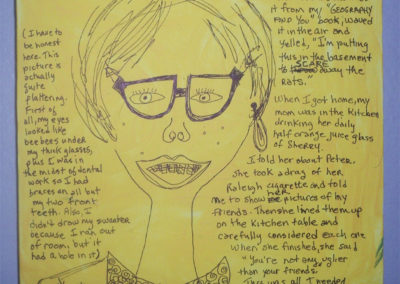 (I have to
be honest
here. This
picture is
actually
quite
flattering.
First of
all, my eyes
looked like
bee bees under
my thick glasses,
plus I was in
the midst of dental
work so I had
braces on all but
my two front
teeth. Also, I
didn't draw my sweater
because I ran out
of room, but it
had a hole in it)
it from my "GEOGRAPHY
AND YOU" book, waved
it in the air and
yelled, "I'm putting
this in the basement
to SCARE away the
rats."
When I got home, my
mom was in the kitchen
drinking her daily
half orange juice glass
of Sherry.
I told her about Peter.
She took a drag of her
Raleigh cigarette and told
me to show her pictures of my
friends. Then she lined them up
on the kitchen table and
carefully considered each one
When she finished, she said
"You're not any uglier
than your friends.
This was all I needed